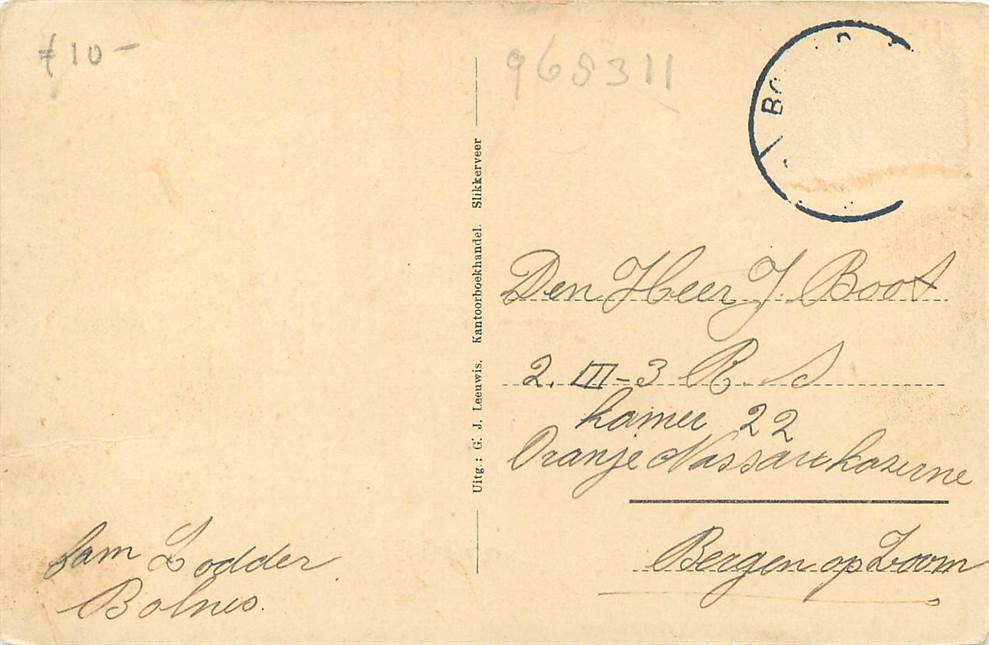 f 10 -
965311
BO
Uitg.: G. J. Leeuwis. Kantoorboekhandel. Slikkerveer
Den Heer J. Boot
2. III - 3 R. S
Kamer 22
Oranje Nassau kazerne
Bergen op Zoom
fam Lodder
Bolnes.